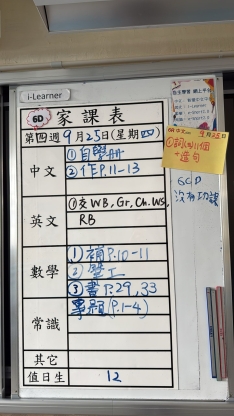 i-Learner
6D 家課表
第四週 9月25日(星期四)
中文
①自學冊
②作P.11-13
英文
①交WB, Gr, Ch. WS,
RB
數學
①補P.10-11
②堅工
③書P.29, 33
常識
專題(P.1-4)
其它
值日生 12
9月25日
①詞語11個
+造句
GCD
沒有功課